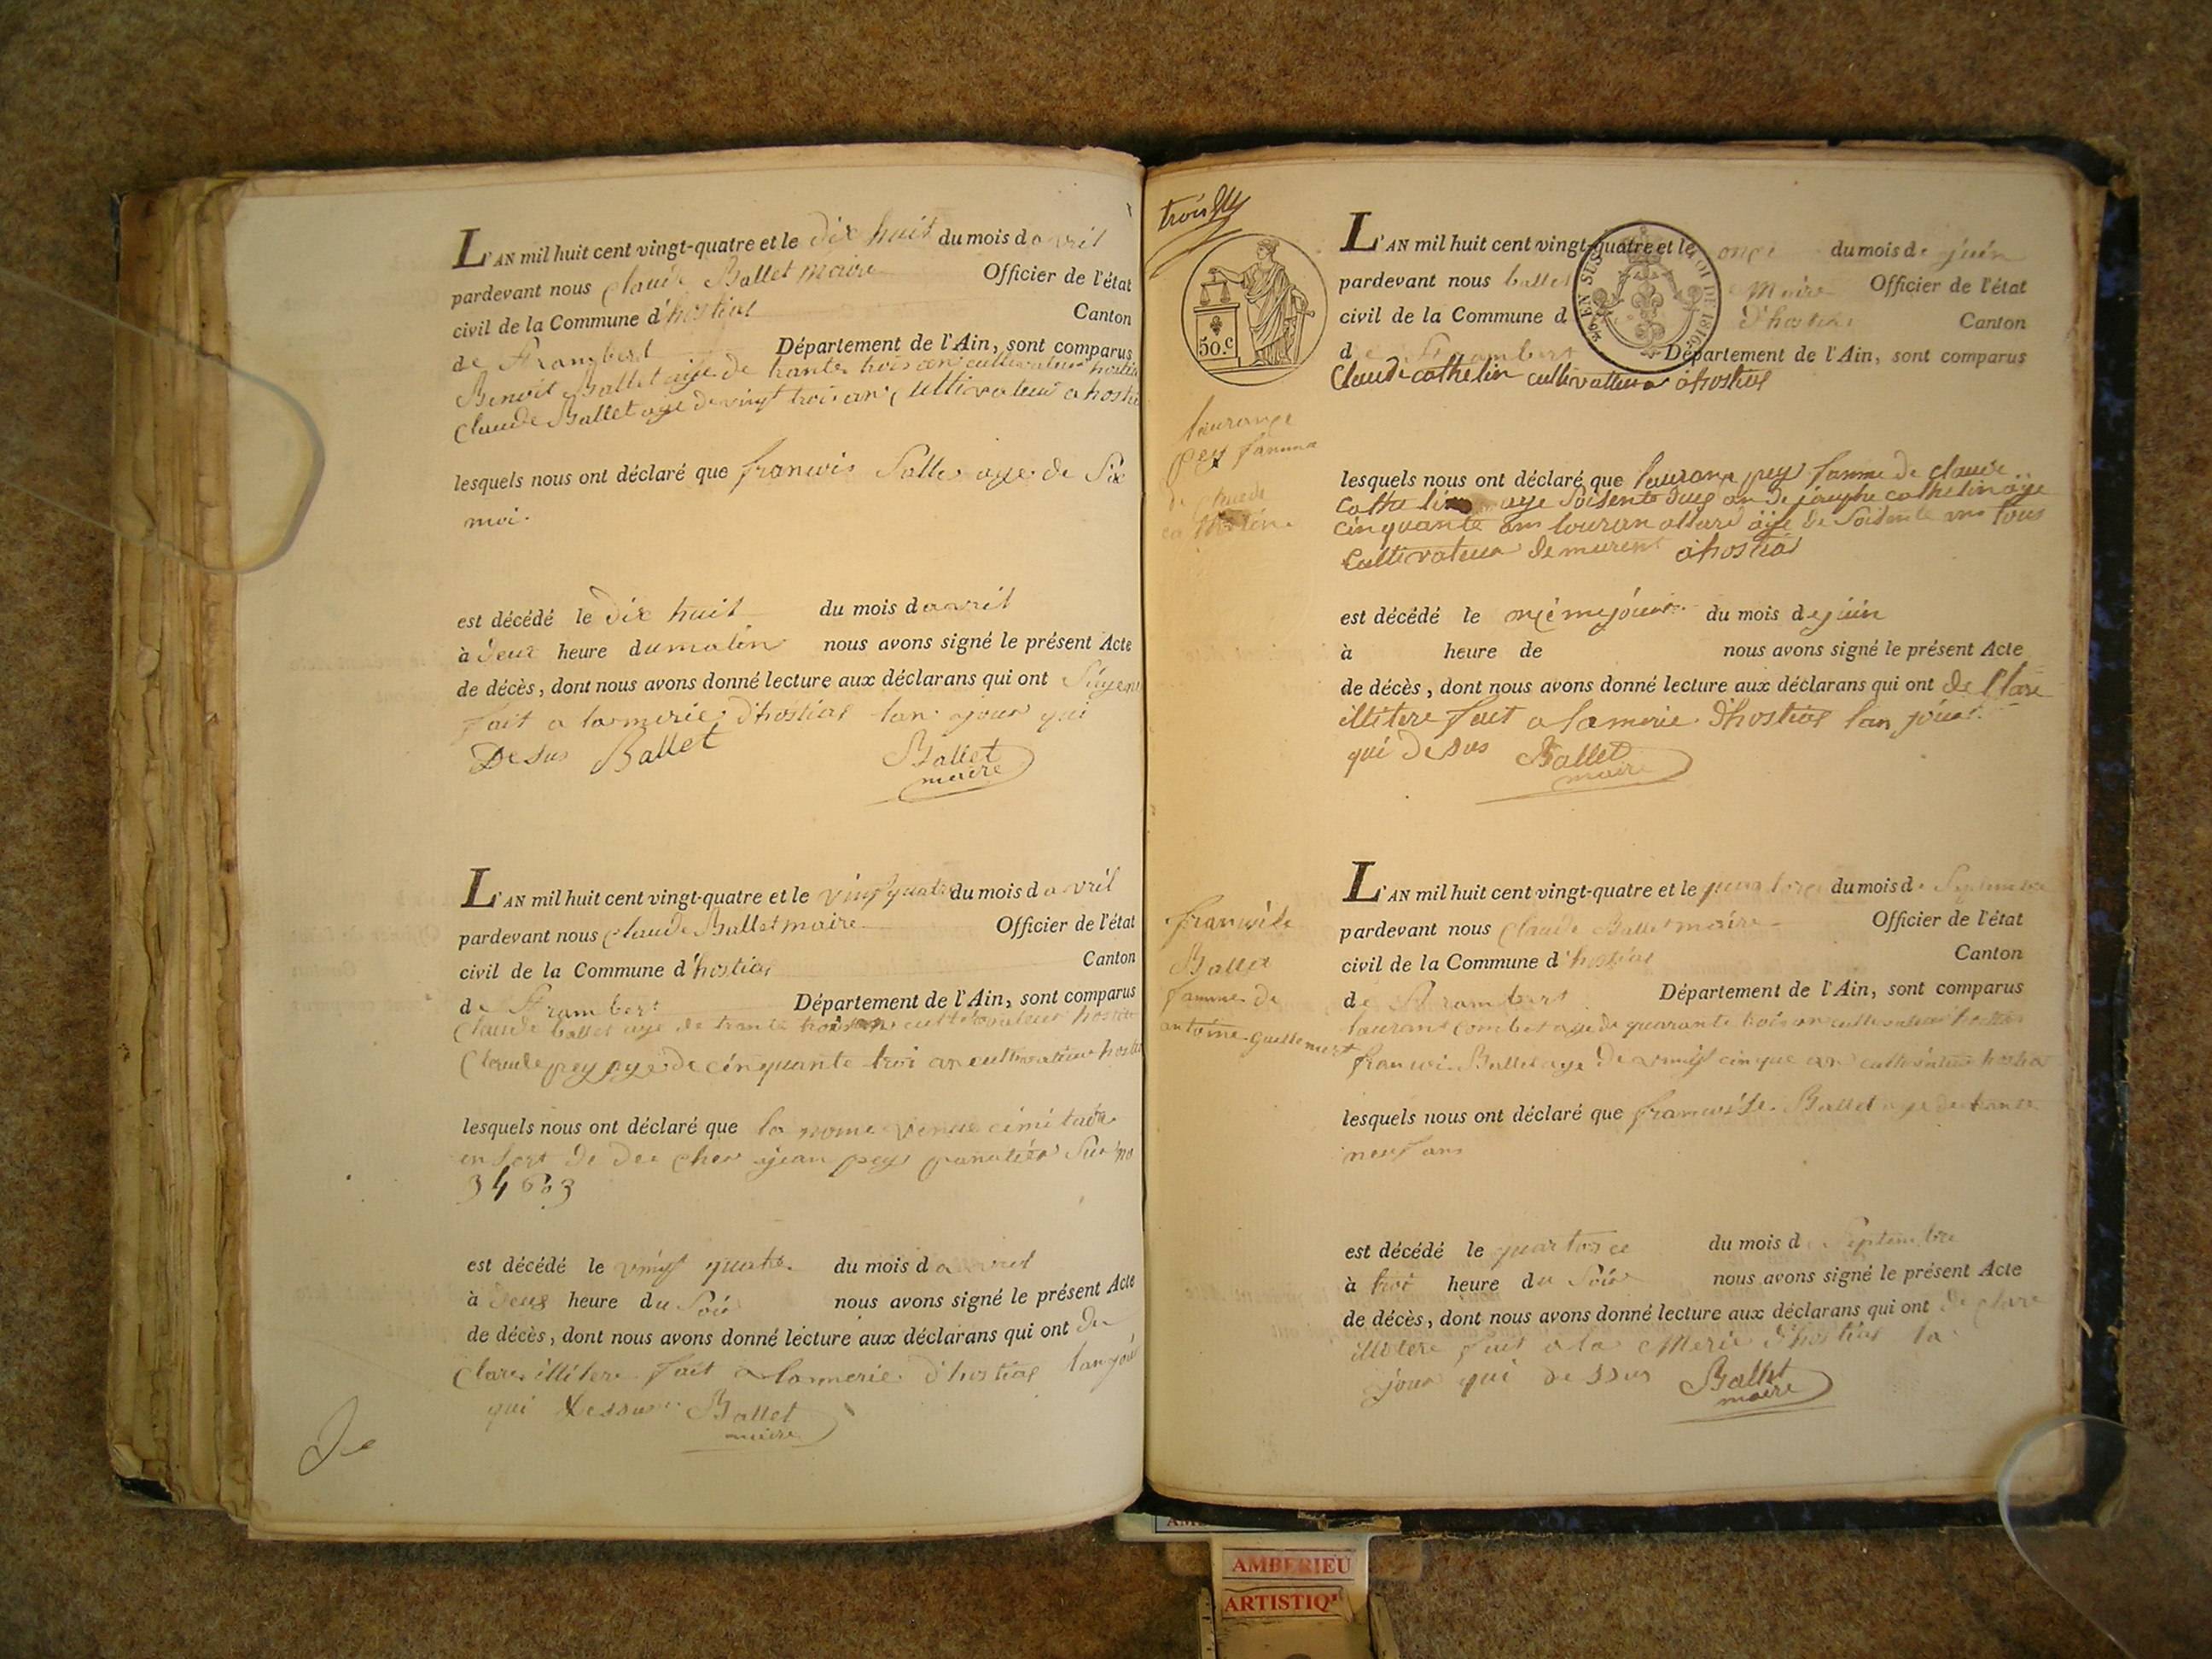 L'AN mil huit cent vingt-quatre et le dix huit du mois d avril
pardevant nous Claude Ballet maire Officier de l'état
civil de la Commune d'hostias Canton
de St rambert Département de l'Ain, sont comparus
Benoit Ballet aje de trante trois ans cultivateur hostias
Claude Ballet aje de vingt trois an cultivateur a hostia
lesquels nous ont déclaré que francois Salle aye de Six
moi.
est décédé le dix huit du mois d avril
à deux heure du matin nous avons signé le présent Acte
de décès, dont nous avons donné lecture aux déclarans qui ont
fait a lamerie d'hostias lan jour qui
Desus Ballet Ballet
maire
L'AN mil huit cent vingt-quatre et le vingt quatre du mois d avril
pardevant nous Claude Ballet maire Officier de l'état
civil de la Commune d'hostias Canton
de St rambert Département de l'Ain, sont comparus
Claude ballet aye de trante trois an cultivateur hostias
Claude pey aye de cinquante troi an cultivateur hostia
lesquels nous ont déclaré que la nome
jean pey
34603
est décédé le vingt quatre du mois d avril
à deux heure du Soir nous avons signé le présent Acte
de décès, dont nous avons donné lecture aux déclarans qui ont de
clare illitere fait a lammerie d'hostias lan jour
qui dessus Ballet
maire
De
trois
50.c
EN SUS LOI DE 1816
L'AN mil huit cent vingt-quatre et le onze du mois de juin
pardevant nous ballet Maire Officier de l'état
civil de la Commune d'hostias Canton
de St rambert Département de l'Ain, sont comparus
Claude cathelin cultivatteur a hostias
laurange
pey famme
de Claude
cathelin
lesquels nous ont déclaré que laurange pey famme de claude
cathelin aye Soisente an de josephe cathelin aye
cinquante ans louran allard aje de Soisente ans tous
cultivateur demurent a hostias
est décédé le du mois de juin
à heure de nous avons signé le présent Acte
de décès, dont nous avons donné lecture aux déclarans qui ont de Clare
illitere fait a lamerie d'hostias lan jour
qui desus Ballet
maire
L'AN mil huit cent vingt-quatre et le quatorze du mois de Septembre
pardevant nous Claude Ballet maire Officier de l'état
civil de la Commune d'hostias Canton
de St rambert Département de l'Ain, sont comparus
francoise
Ballet
famme de
antoine guillermet
laurant combet aye de quarante trois an cultivateur hostias
francoi Ballet aye de vingt cinque an cultivateur hostia
lesquels nous ont déclaré que francoise Ballet aye de trante
neuf ans
est décédé le quartorze du mois d Septembre
à troi heure du Soir nous avons signé le présent Acte
de décès, dont nous avons donné lecture aux déclarans qui ont de clare
illitere fait a la Merie d'hostias la
jour qui dessus Ballet
maire
AMBERIEU
ARTISTIQ